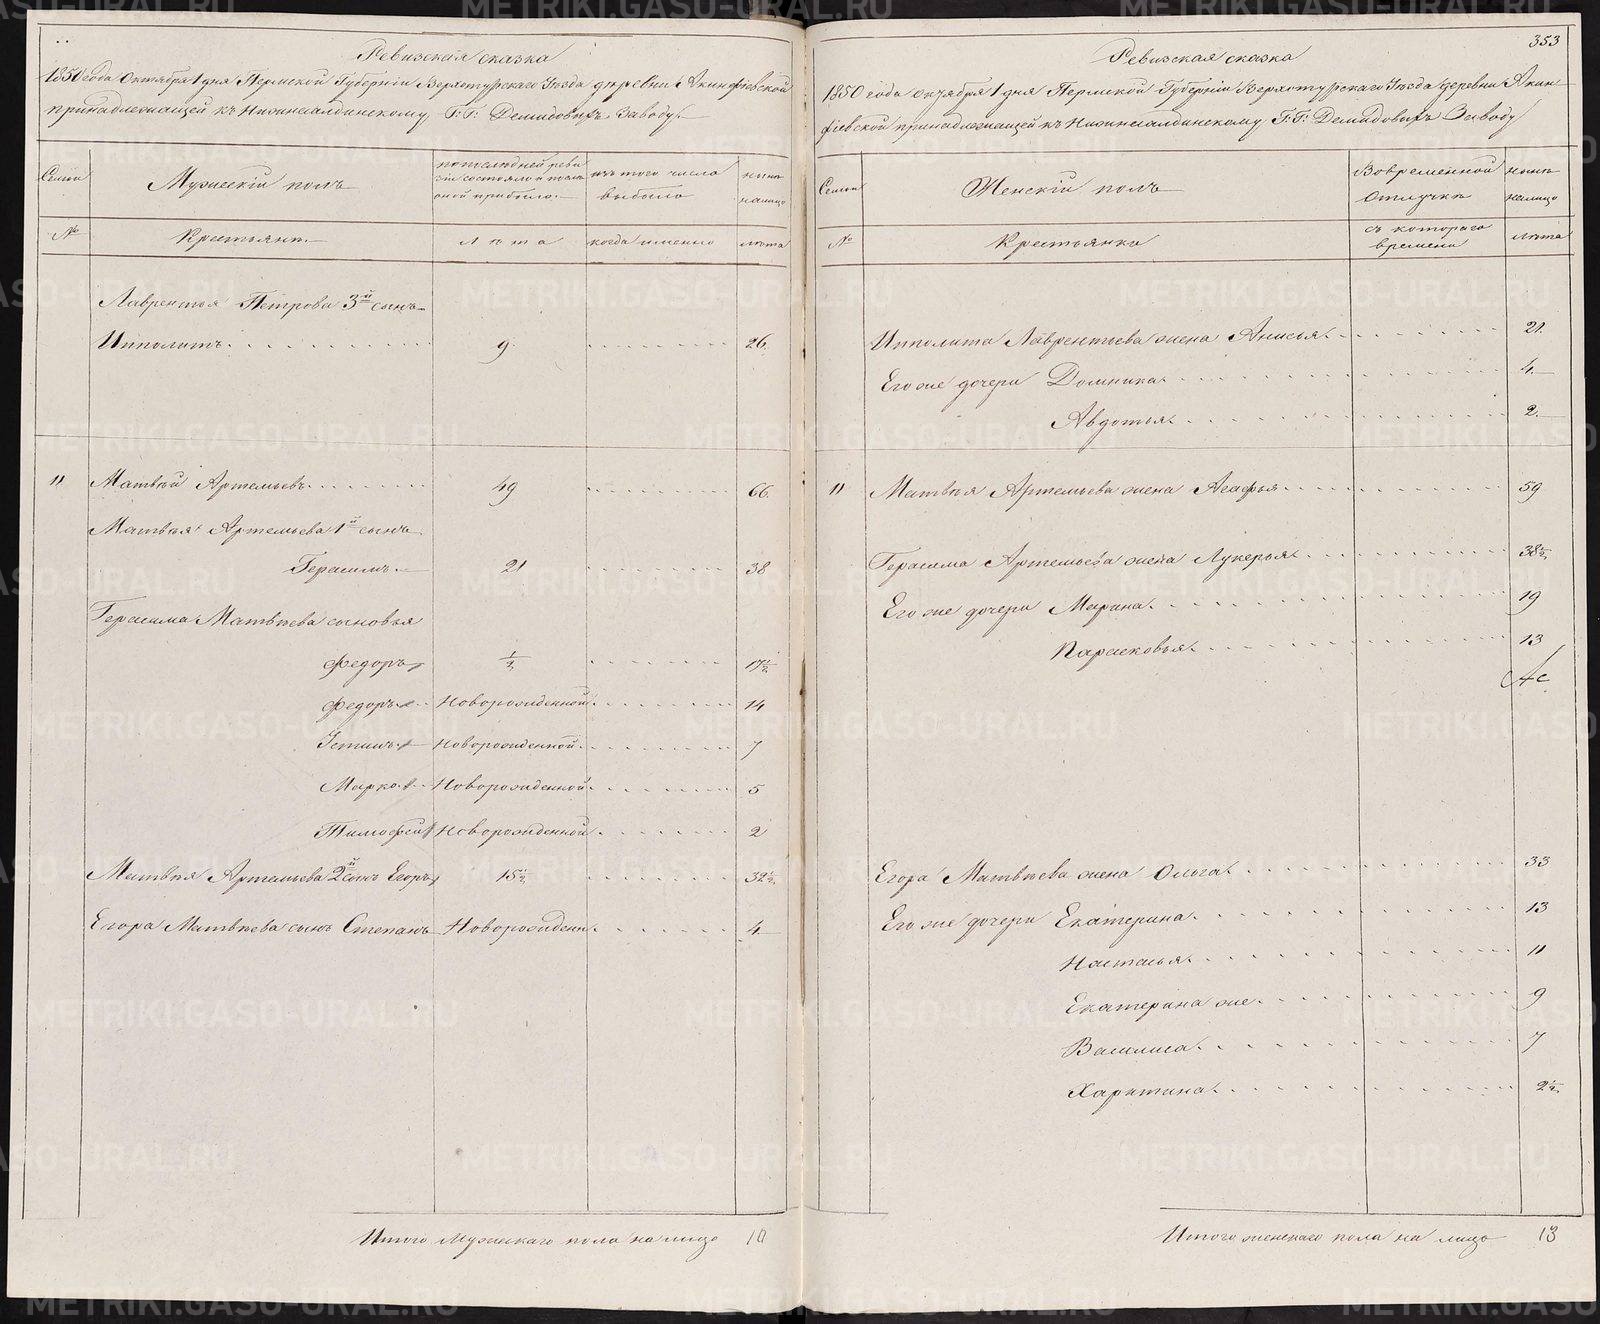 Ревизская сказка
1850 года Октября 1 дня Пермской Губернии Верхотурскаго Уезда деревни Акинфиевской
принадлежащей къ Нижнесалдинскому Г.Г. Демидовыхъ Заводу
Семьи
Мужескій полъ
по последней реви
зіи состояло и после
оной прибыло
изъ того числа
выбыло
ныне
на лицо
№
Крестьяне
Лета
когда именно
лета
Лаврентья Петрова 3й сынъ
Ипполитъ 9 26
11 Матвей Артемьевъ 49 66
Матвея Артемьева 1й сынъ
Герасимъ 21 38
Герасима Матвеева сыновья
Федоръ 1/2 17 1/2
Федоръ же Новорожденной 14
Устинъ Новорожденной 7
Марко Новорожденной 5
Тимофей Новорожденной 2
Матвея Артемьева 2й сынъ Егоръ 15 1/2 32 1/2
Егора Матвеева сынъ Степанъ Новорожденн 4
Итого Мужескаго пола на лицо 10
353
Ревизская сказка
1850 года октября 1 дня Пермской Губерніи Верхотурскаго Уезда деревни Акин
фиевской принадлежащей къ Нижнесалдинскому Г.Г. Демидовыхъ Заводу
Семьи
Женскій полъ
Во временной
отлучке
ныне
на лицо
№
Крестьянки
съ котораго
времени
лета
Ипполита Лаврентьева жена Анисья 21
Его же дочери Домника 4
Авдотья 2
11 Матвея Артемьева жена Агафья 59
Герасима Артемьева жена Лукерья 38 1/2
Его же дочери Марина 19
Парасковья 13
Егора Матвеева жена Ольга 33
Его же дочери Екатерина 13
Настасья 11
Екатерина же 9
Василиса 7
Харитина 2 1/2
Итого женскаго пола на лицо 13
METRIKI.GASO-URAL.RU